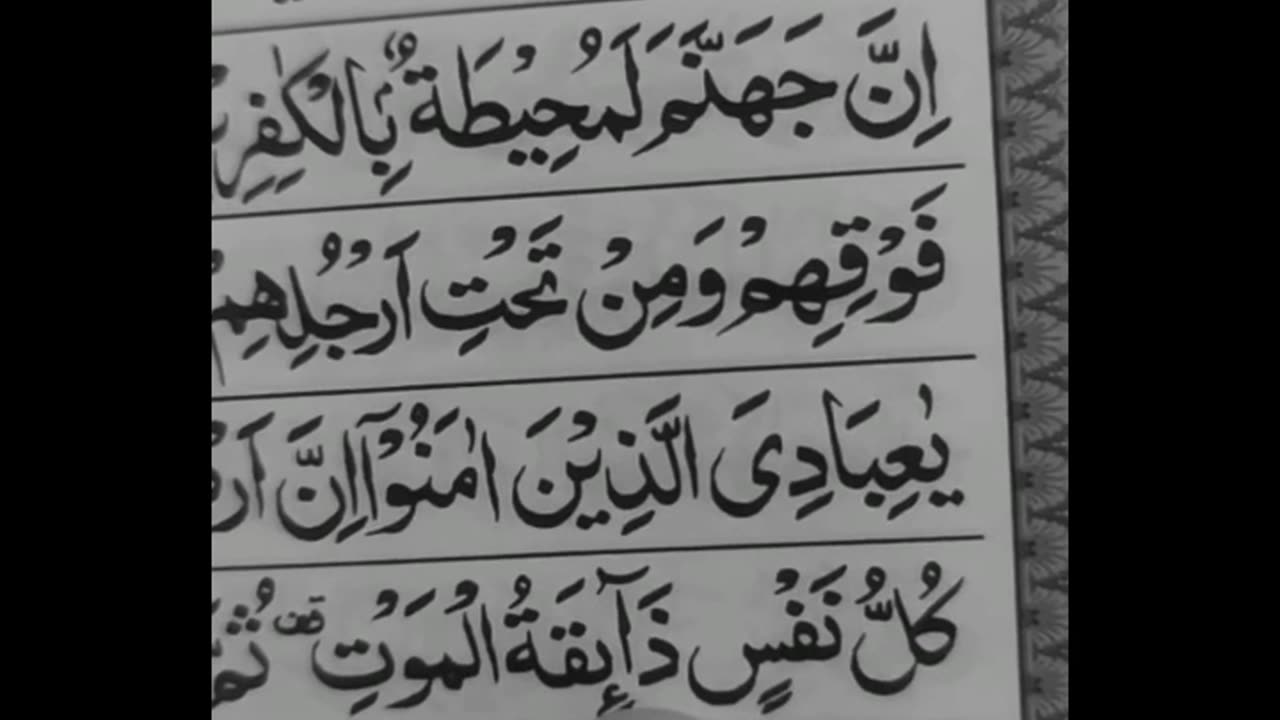 اِنَّ جَهَنَّمَ لَمُحِيْطَةٌۢ بِالْكٰفِرِ
فَوْقِهِمْ وَمِنْ تَحْتِ اَرْجُلِهِمْ
يٰعِبَادِىَ الَّذِيْنَ اٰمَنُوْۤا اِنَّ اَرْ
كُلُّ نَفْسٍ ذَآئِقَةُ الْمَوْتِ ثُمَّ